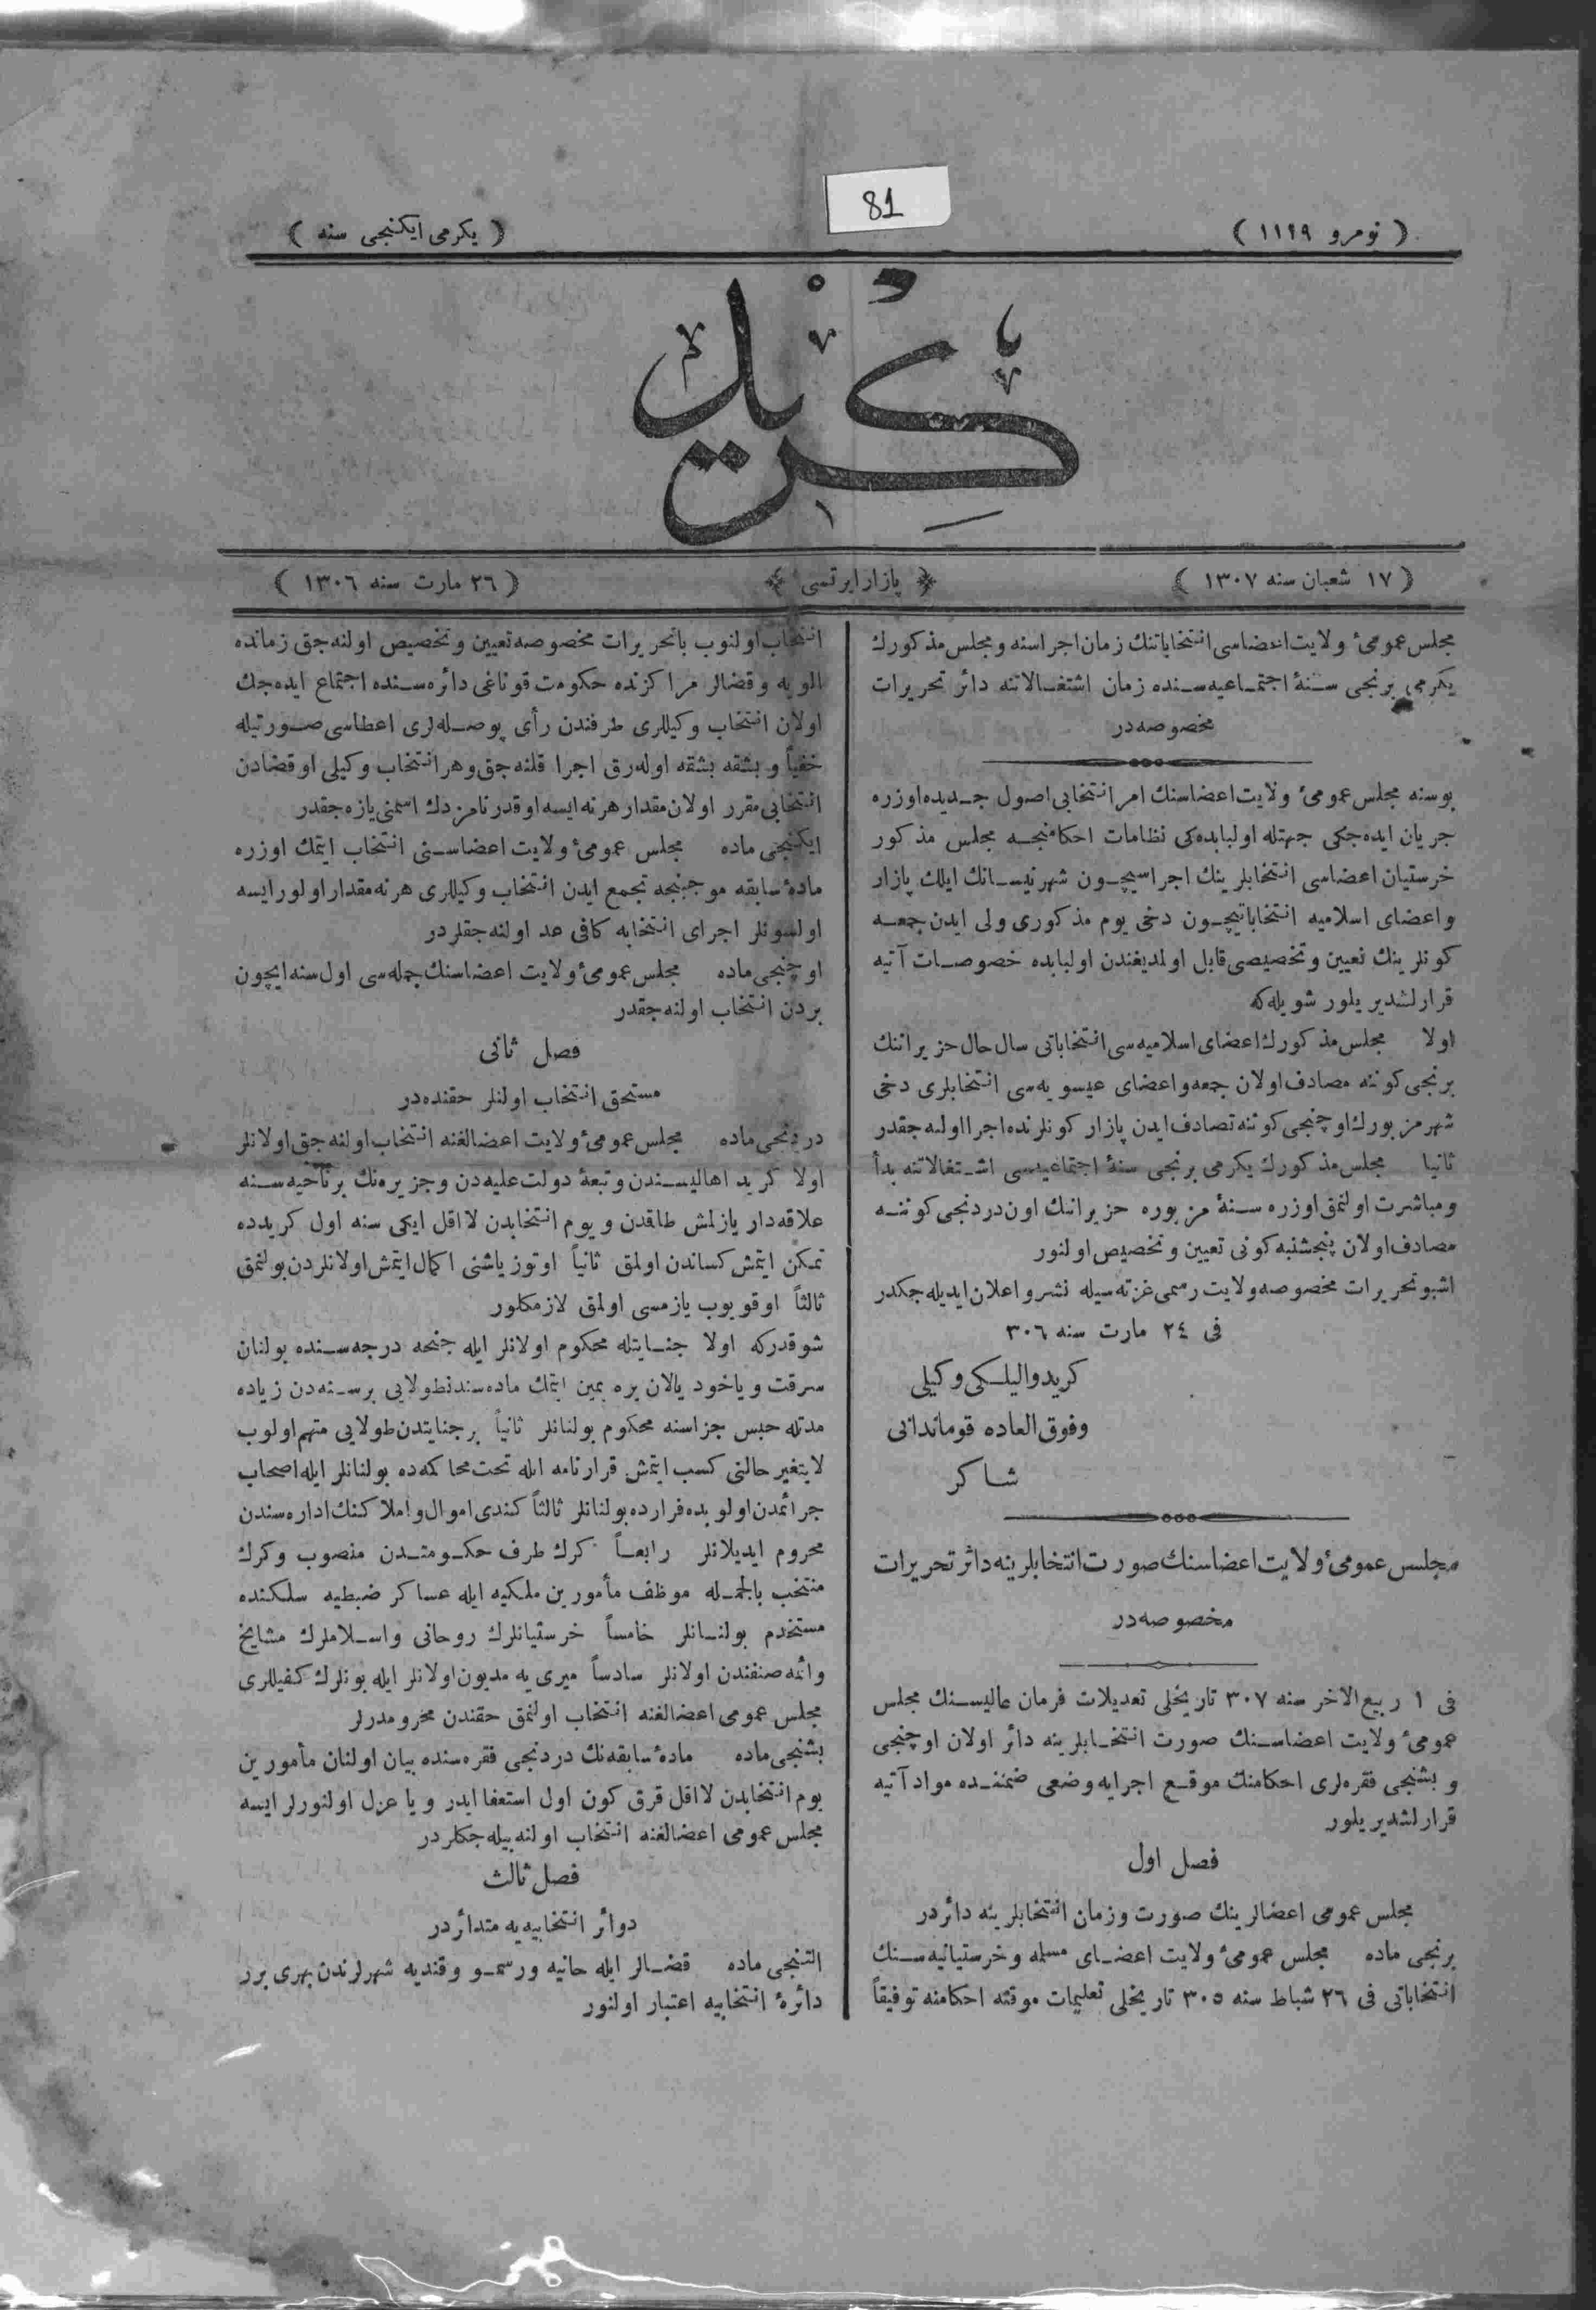 81
( نومرو ١١٢٩ )
( يكرمی ايكنجی سنه )
كريد
( ١٧ شعبان سنه ١٣٠٧ )
پازار ايرتسی
( ٢٦ مارت سنه ١٣٠٦ )
مجلس عمومئ ولايت اعضاسی انتخاباتنك زمان اجراسنه و مجلس مذكورك
يكرمی برنجی سنۀ اجتماعيه‌سنده زمان اشتغالاتنه دائر تحريرات
مخصوصه‌در
بو سنه مجلس عمومئ ولايت اعضاسنك امر انتخابی اصول جديده اوزره
جريان ايده‌جكی جهتله اولبابده‌كی نظامات احكامنجه مجلس مذكور
خرستيان اعضاسی انتخابلرينك اجراسيچون شهر نيسانك ايلك پازار
و اعضای اسلاميه انتخاباتيچون دخی يوم مذكوری ولی ايدن جمعه
كونلرينك تعيين و تخصيصی قابل اولمديغندن اولبابده خصوصات آتيه
قرارلشديريلور شويله‌كه
اولا مجلس مذكورك اعضای اسلاميه‌سی انتخاباتی سال حال حزيراننك
برنجی كوننه مصادف اولان جمعه و اعضای عيسويه‌سی انتخابلری دخی
شهر مزبورك اوچنجی كوننه تصادف ايدن پازار كونلرنده اجرا اولنه‌جقدر
ثانيا مجلس مذكورك يكرمی برنجی سنۀ اجتماعيه‌سی اشتغالاتنه بدأ
و مباشرت اولنمق اوزره سنۀ مزبوره حزيراننك اون دردنجی كوننه
مصادف اولان پنجشنبه كونی تعيين و تخصيص اولنور
اشبو تحريرات مخصوصه ولايت رسمی غزته‌سيله نشر و اعلان ايديله‌جكدر
فی ٢٤ مارت سنه ٣٠٦
كريد واليلكی وكيلی
و فوق العاده قومماندانی
شاكر
مجلس عمومئ ولايت اعضاسنك صورت انتخابلرينه دائر تحريرات
مخصوصه‌در
فی ١ ربيع الاخر سنه ٣٠٧ تاريخلی تعديلات فرمان عاليسنك مجلس
عمومئ ولايت اعضاسنك صورت انتخابلرينه دائر اولان اوچنجی
و بشنجی فقره‌لری احكامنك موقع اجرايه وضعی ضمننده مواد آتيه
قرارلشديريلور
فصل اول
مجلس عمومی اعضالرينك صورت و زمان انتخابلرينه دائردر
برنجی ماده مجلس عمومئ ولايت اعضای مسلمه و خرستيانيه‌سنك
انتخاباتی فی ٢٦ شباط سنه ٣٠٥ تاريخلی تعليمات موقته احكامنه توفيقاً
انتخاب اولنوب باتحريرات مخصوصه تعيين و تخصيص اولنه‌جق زمانده
الويه و قضالر مراكزنده حكومت قوناغی دائره‌سنده اجتماع ايده‌جك
اولان انتخاب وكيللری طرفندن رأی پوصله‌لری اعطاسی صورتيله
خفياً و بشقه بشقه اوله‌رق اجرا قلنه‌جق و هر انتخاب وكيلی او قضادن
انتخابی مقرر اولان مقدار هر نه ايسه او قدر نامزدك اسمنی يازه‌جقدر
ايكنجی ماده مجلس عمومئ ولايت اعضاسنی انتخاب ايتمك اوزره
مادۀ سابقه موجبنجه تجمع ايدن انتخاب وكيللری هر نه مقدار اولور ايسه
اولسونلر اجرای انتخابه كافی عد اولنه‌جقلردر
اوچنجی ماده مجلس عمومئ ولايت اعضاسنك جمله‌سی اول سنه ايچون
بردن انتخاب اولنه‌جقدر
فصل ثانی
مستحق انتخاب اولنلر حقنده‌در
دردنجی ماده مجلس عمومئ ولايت اعضالغنه انتخاب اولنه‌جق اولانلر
اولا كريد اهاليسندن و تبعۀ دولت عليه‌دن و جزيره‌نك بر ناحيه‌سنه
علاقه‌دار يازلمش طاقدن و يوم انتخابدن لااقل ايكی سنه اول كريدده
تمكن ايتمش كساندن اولمق ثانياً اوتوز ياشنی اكمال ايتمش اولانلردن بولنمق
ثالثاً اوقويوب يازمسی اولمق لازمكلور
شو قدركه اولا جنايتله محكوم اولانلر ايله جنحه درجه‌سنده بولنان
سرقت و ياخود يالان يره يمين ايتمك ماده‌سندنطولايی بر سنه‌دن زياده
مدتله حبس جزاسنه محكوم بولنانلر ثانياً بر جنايتدن طولايی متهم اولوب
لايتغير حالنی كسب ايتمش قرارنامه ايله تحت محاكمه‌ده بولنانلر ايله اصحاب
جرائمدن اولوبده فرارده بولنانلر ثالثاً كندی اموال و املاكنك اداره‌سندن
محروم ايديلانلر رابعاً كرك طرف حكومتدن منصوب و كرك
منتخب بالجمله موظف مأمورين ملكيه ايله عساكر ضبطيه سلكنده
مستخدم بولنانلر خامساً خرستيانلرك روحانی و اسلاملرك مشايخ
و ائمه صنفندن اولانلر سادساً ميری يه مديون اولانلر ايله بونلرك كفيللری
مجلس عمومی اعضالغنه انتخاب اولنمق حقندن محرومدرلر
بشنجی ماده مادۀ سابقه‌نك دردنجی فقره‌سنده بيان اولنان مأمورين
يوم انتخابدن لااقل قرق كون اول استعفا ايدر و يا عزل اولنورلر ايسه
مجلس عمومی اعضالغنه انتخاب اولنه بيله‌جكلردر
فصل ثالث
دوائر انتخابيه‌يه متدائردر
التنجی ماده قضالر ايله حانيه و رسمو و قنديه شهرلرندن بهری برر
دائرۀ انتخابيه اعتبار اولنور